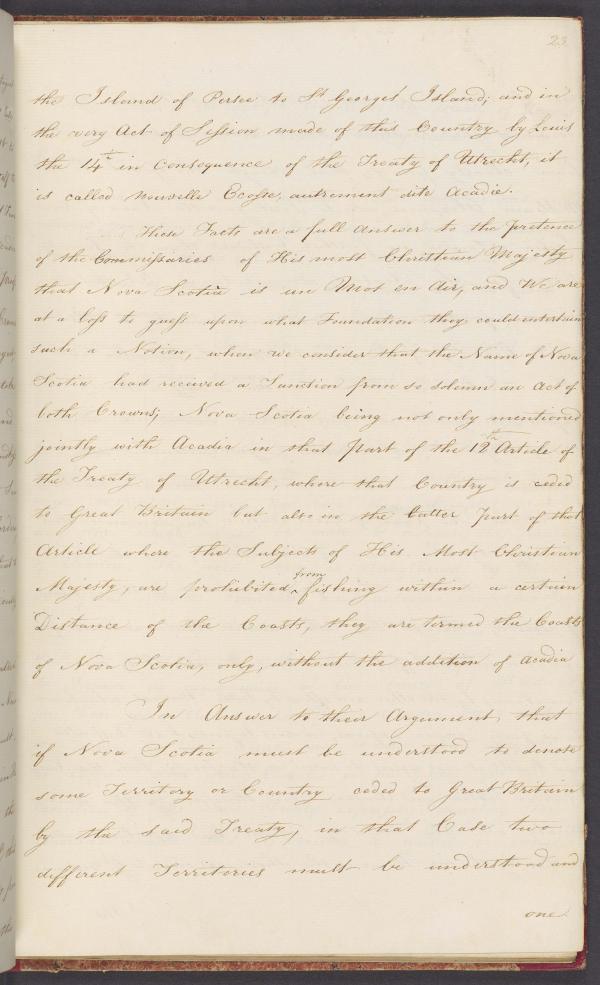 23
the Island of Persée to St Georges' Island; and in
the very Act of Session made of this Country by Louis
the 14th in consequence of the Treaty of Utrecht, it
is called nouvelle Ecosse, autrement dite Acadie.
These Facts are a full Answer to the pretence
of the Commissaries of His most Christian Majesty
that Nova Scotia is un Mot en Air, and We are
at a loss to guess upon what Foundation they could entertain
such a Notion, when we consider that the Name of Nova
Scotia had received a Sanction from so solemn an Act of
both Crowns; Nova Scotia being not only mentioned
jointly with Acadia in that part of the 12th Article of
the Treaty of Utrecht, where that Country is ceded
to Great Britain but also in the latter part of that
Article where the Subjects of His Most Christian
Majesty, are prohibited from fishing within a certain
Distance of the Coasts, they are termed the Coasts
of Nova Scotia, only, without the addition of Acadia
In Answer to their Argument, that
if Nova Scotia must be understood to denote
some Territory or Country ceded to Great Britain
by the said Treaty, in that Case two
different Territories must be understood and
one